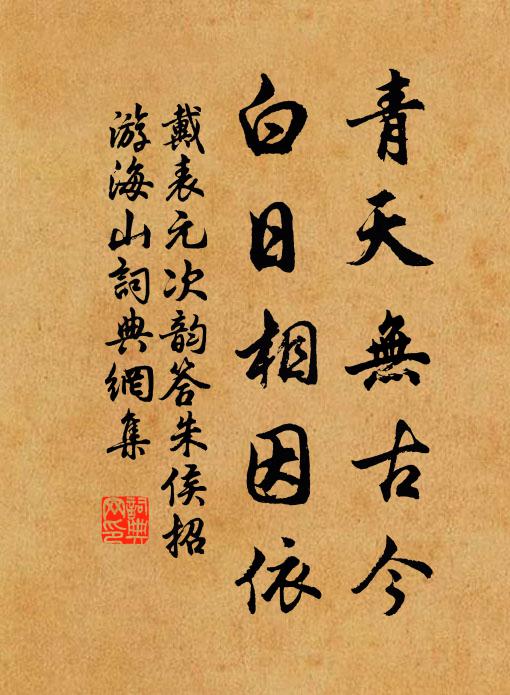 青天無古今
白日相因依
戴表元次韵答朱侯招
游海山詞典網集
詞典網印